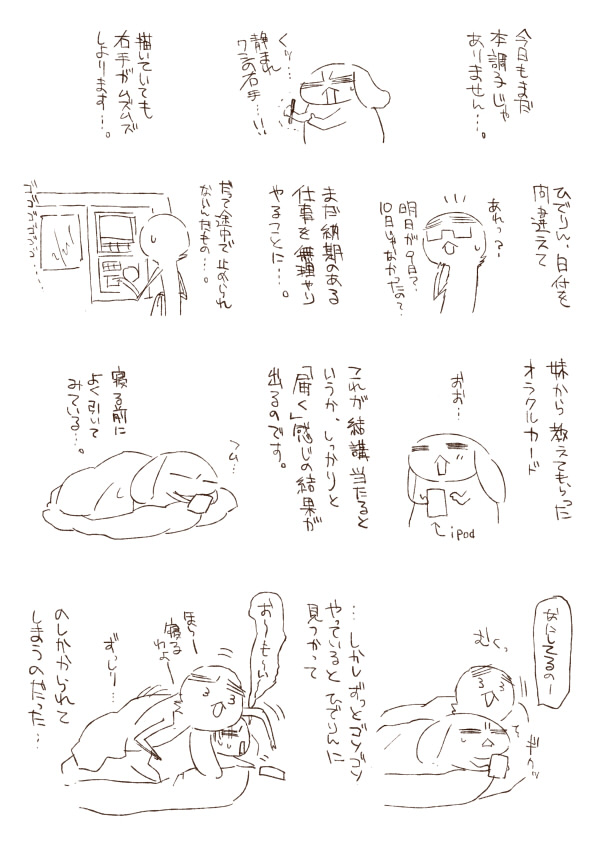 今日もまだ
本調子じゃ
ありません…。
くッ…
静まれ
ワシの右手…!!
描いていても
右手がムズムズ
しよります…。
ひでりん、日付を
間違えて
あれっ?
明日が9日?
10日じゃなかったの?
まだ納期のある
仕事を無理やり
やることに…。
だって途中で止められ
ないんだもの…。
ゴゴゴゴゴゴ…
妹から教えてもらった
オラクルカード
おお…
iPod
これが結講当たると
いうか、しっかりと
「届く」感じの結果が
出るのです。
寝る前に
よく引いて
みている…。
フム…
なにしてるのー
むくっ
ギクッ
…しかしずっとゴソゴソ
やっているとひでりんに
見つかって
お〜も〜い
ほらー
寝る
わよー
ずっしり…
のしかかられて
しまうのだった…